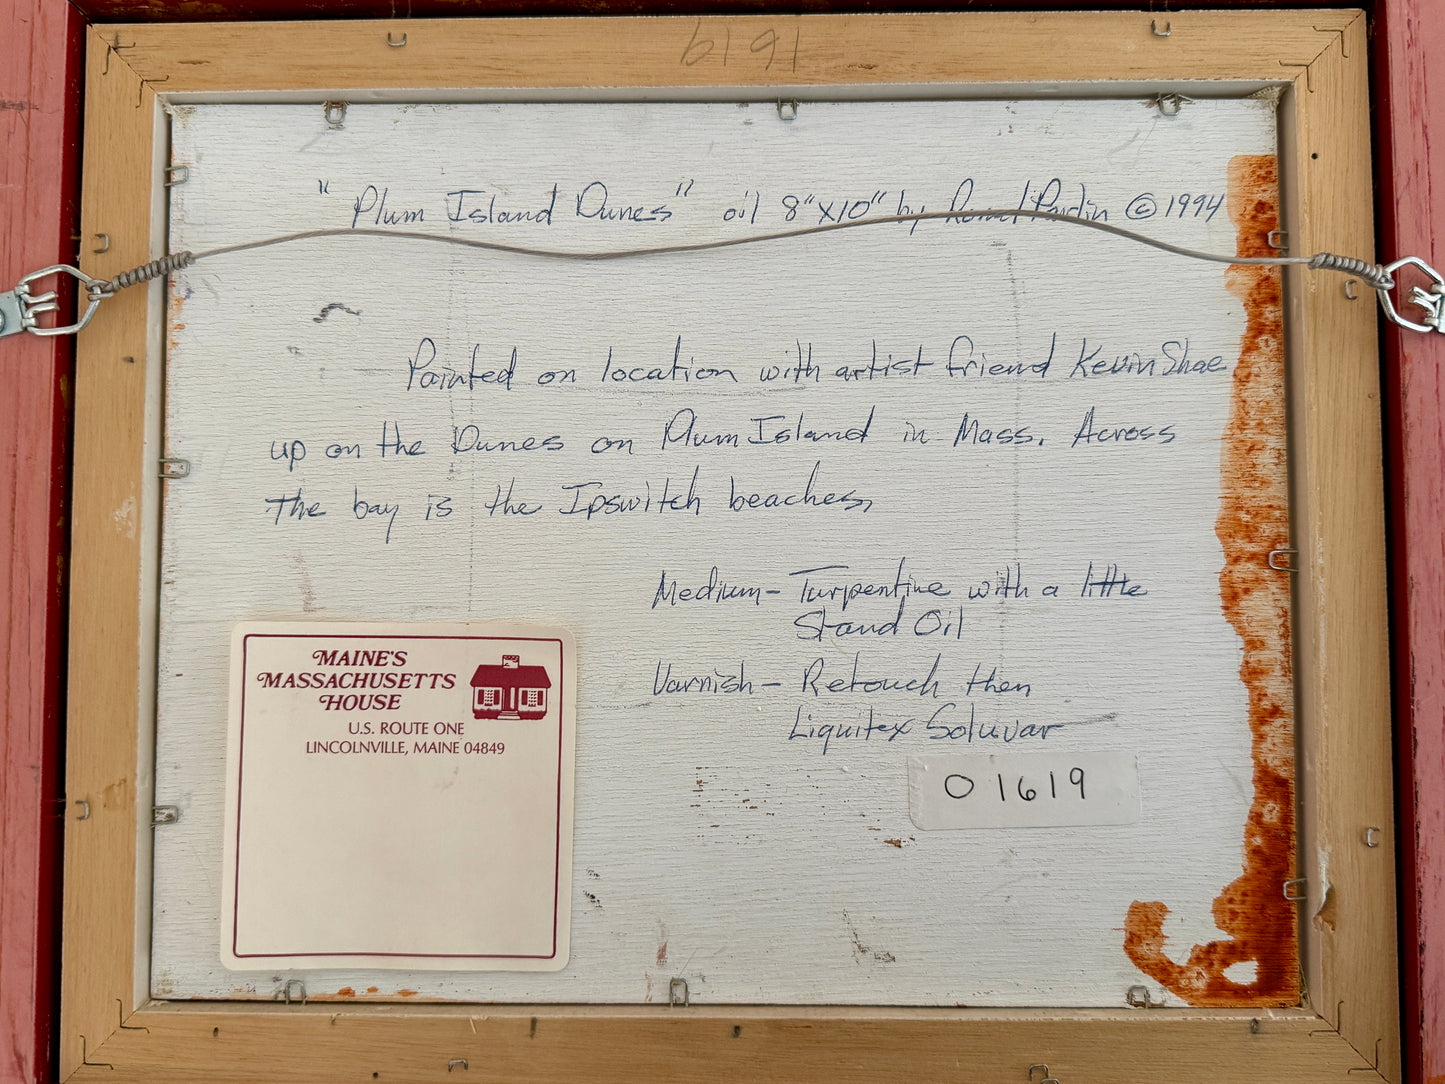 1619
"Plum Island Dunes" oil 8"X10" by Ronal Pardin © 1994
Painted on location with artist friend Kevin Shae
up on the Dunes on Plum Island in Mass. Across
the bay is the Ipswitch beaches,
Medium - Turpentine with a little
Stand Oil
Varnish - Retouch then
Liquitex Soluvar
MAINE'S
MASSACHUSETTS
HOUSE
U.S. ROUTE ONE
LINCOLNVILLE, MAINE 04849
01619